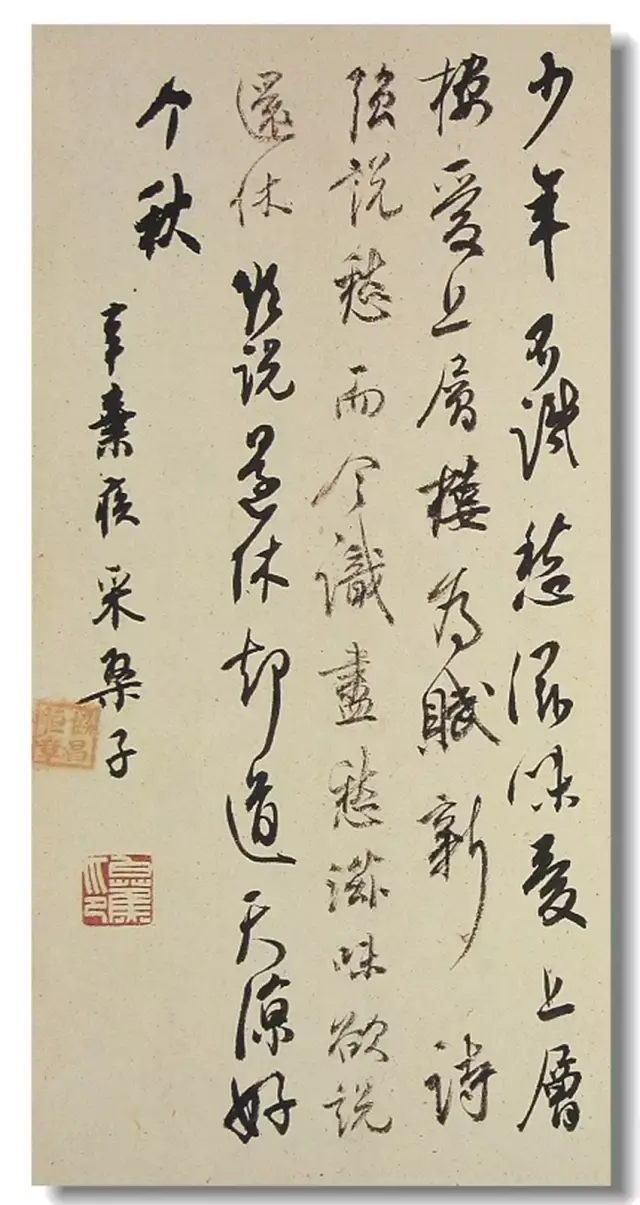 少年不識愁滋味愛上層
樓愛上層樓為賦新詩
強説愁而今識盡愁滋味欲説
還休欲説還休却道天涼好
个秋
辛棄疾采桑子